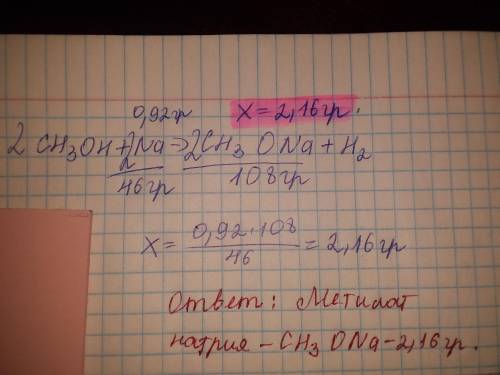 0,92гр x=2,16гр.
2 CH₃OH+2Na→2CH₃ONa+H₂
46гр 108гр
x= 0,92·108/46 = 2,16гр
Ответ: Метилат
натрия – CH₃ONa – 2,16гр.